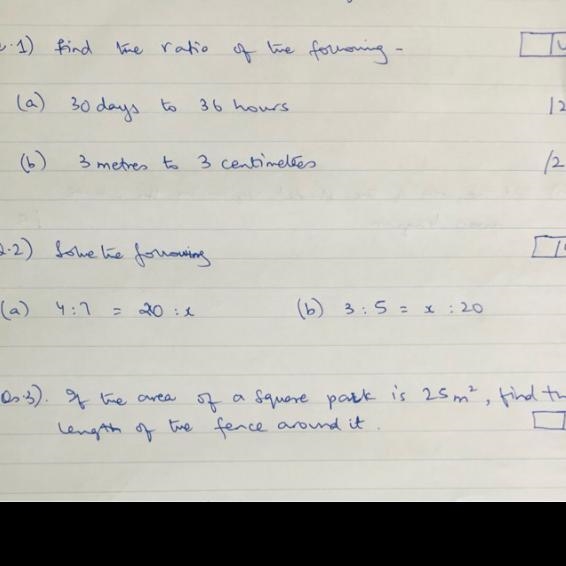 .1) Find the ratio of the following -
(a) 30 days to 36 hours /2
(b) 3 metres to 3 centimetres /2
2.2) Solve the following
(a) 4:7 = 20 : x (b) 3 : 5 = x : 20
Qs.3). If the area of a square park is 25 m², find th
length of the fence around it.